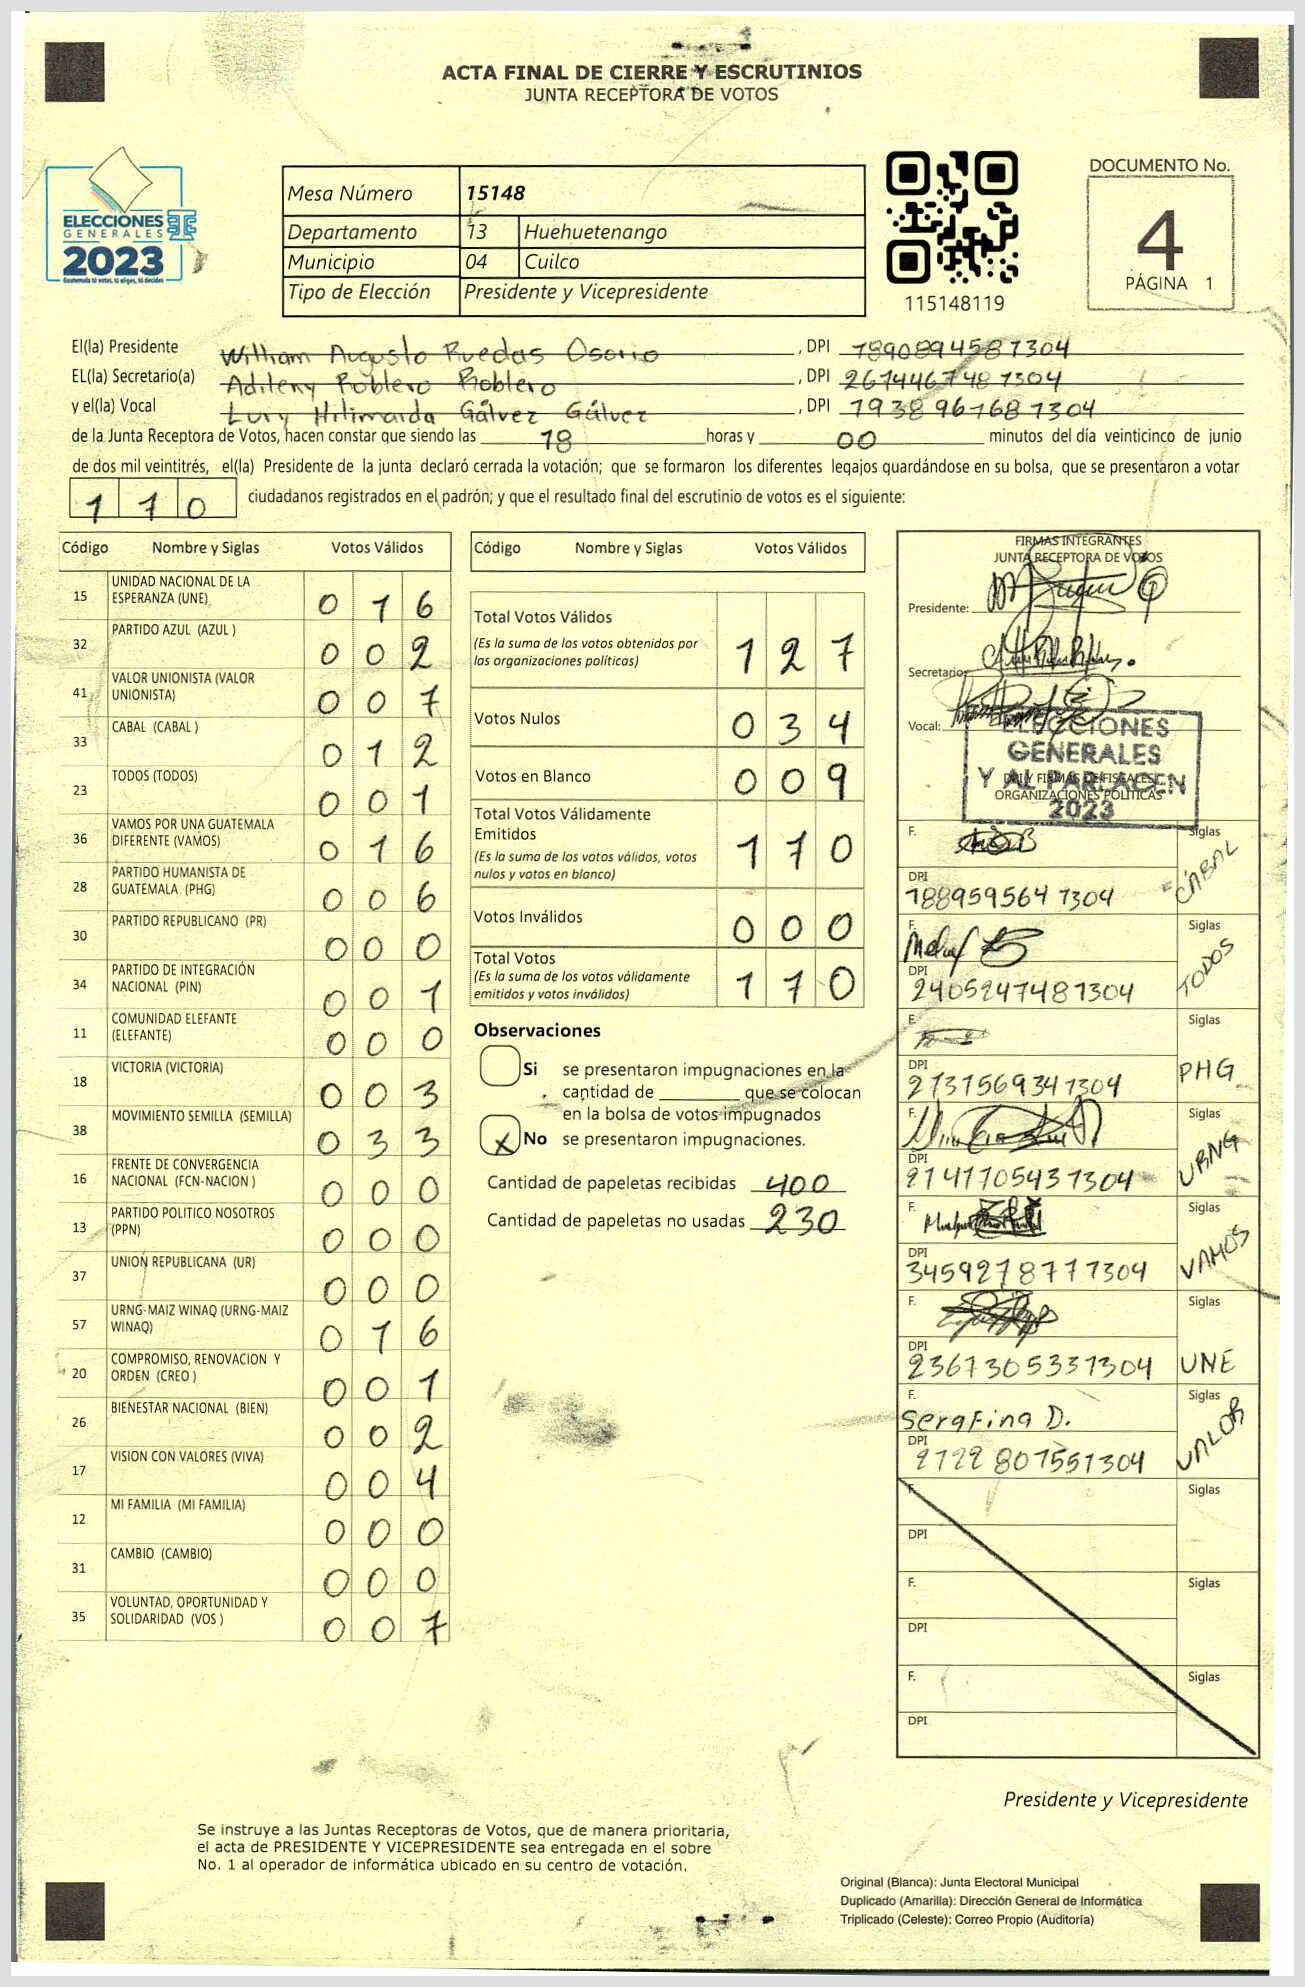 ACTA FINAL DE CIERRE Y ESCRUTINIOS
JUNTA RECEPTORA DE VOTOS
ELECCIONES
GENERALES
2023
Guatemala tú votas, tú eliges, tú decides
Mesa Número 15148
Departamento 13 Huehuetenango
Municipio 04 Cuilco
Tipo de Elección Presidente y Vicepresidente
115148119
DOCUMENTO No.
4
PÁGINA 1
El(la) Presidente William Augusto Ruedas Osorio , DPI 7890894587304
EL(la) Secretario(a) Adileny Roblero Roblero , DPI 2674467487304
y el(la) Vocal Lury Hilimaida Gálvez Gálvez , DPI 7938967687304
de la Junta Receptora de Votos, hacen constar que siendo las 18 horas y 00 minutos del día veinticinco de junio
de dos mil veintitrés, el(la) Presidente de la junta declaró cerrada la votación; que se formaron los diferentes legajos guardándose en su bolsa, que se presentaron a votar
170 ciudadanos registrados en el padrón; y que el resultado final del escrutinio de votos es el siguiente:
Código Nombre y Siglas Votos Válidos
15 UNIDAD NACIONAL DE LA ESPERANZA (UNE) 016
32 PARTIDO AZUL (AZUL ) 002
41 VALOR UNIONISTA (VALOR UNIONISTA) 007
33 CABAL (CABAL ) 012
23 TODOS (TODOS) 001
36 VAMOS POR UNA GUATEMALA DIFERENTE (VAMOS) 016
28 PARTIDO HUMANISTA DE GUATEMALA (PHG) 006
30 PARTIDO REPUBLICANO (PR) 000
34 PARTIDO DE INTEGRACIÓN NACIONAL (PIN) 001
11 COMUNIDAD ELEFANTE (ELEFANTE) 000
18 VICTORIA (VICTORIA) 003
38 MOVIMIENTO SEMILLA (SEMILLA) 033
16 FRENTE DE CONVERGENCIA NACIONAL (FCN-NACION ) 000
13 PARTIDO POLITICO NOSOTROS (PPN) 000
37 UNION REPUBLICANA (UR) 000
57 URNG-MAIZ WINAQ (URNG-MAIZ WINAQ) 016
20 COMPROMISO, RENOVACION Y ORDEN (CREO ) 001
26 BIENESTAR NACIONAL (BIEN) 002
17 VISION CON VALORES (VIVA) 004
12 MI FAMILIA (MI FAMILIA) 000
31 CAMBIO (CAMBIO) 000
35 VOLUNTAD, OPORTUNIDAD Y SOLIDARIDAD (VOS ) 007
Código Nombre y Siglas Votos Válidos
Total Votos Válidos 127
(Es la suma de los votos obtenidos por
las organizaciones políticas)
Votos Nulos 034
Votos en Blanco 009
Total Votos Válidamente
Emitidos 170
(Es la suma de los votos válidos, votos
nulos y votos en blanco)
Votos Inválidos 000
Total Votos 170
(Es la suma de los votos válidamente
emitidos y votos inválidos)
Observaciones
Si se presentaron impugnaciones en la
cantidad de ________ que se colocan
en la bolsa de votos impugnados
X No se presentaron impugnaciones.
Cantidad de papeletas recibidas 400
Cantidad de papeletas no usadas 230
FIRMAS INTEGRANTES
JUNTA RECEPTORA DE VOTOS
Presidente:
Secretario:
Vocal:
ELECCIONES
GENERALES
Y AL PARLACEN
2023
DPI Y FIRMAS DE FISCALES
ORGANIZACIONES POLÍTICAS
F. Siglas CABAL
DPI 188959564 1304
F. Siglas TODOS
DPI 2405247487304
F. Siglas PHG
DPI 2731569341304
F. Siglas URNG
DPI 2141705437304
F. Siglas VAMOS
DPI 3459278777304
F. Siglas UNE
DPI 2361305331304
F. Serafina D. Siglas VALOR
DPI 2122 807551304
F. Siglas
DPI
F. Siglas
DPI
F. Siglas
DPI
Presidente y Vicepresidente
Se instruye a las Juntas Receptoras de Votos, que de manera prioritaria,
el acta de PRESIDENTE Y VICEPRESIDENTE sea entregada en el sobre
No. 1 al operador de informática ubicado en su centro de votación.
Original (Blanca): Junta Electoral Municipal
Duplicado (Amarilla): Dirección General de Informática
Triplicado (Celeste): Correo Propio (Auditoría)